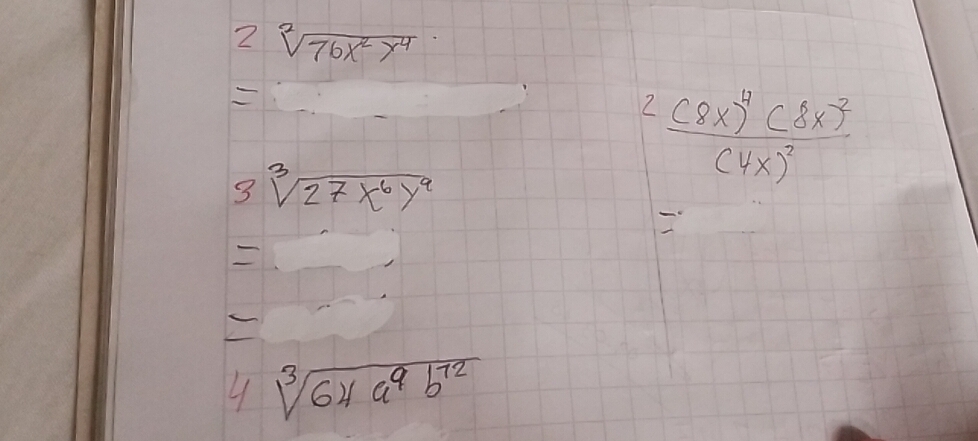 2 ²√76x² y⁴
=
3 ³√27x⁶y⁹
=
=
4 ³√64 a⁹ b¹²
2 (8x)⁴ (8x)²
(4x)²
=